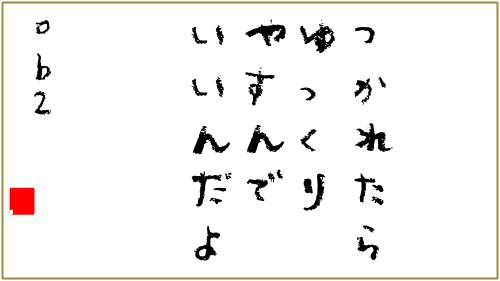 つかれたら
ゆっくり
やすんで
いいんだよ
ob2